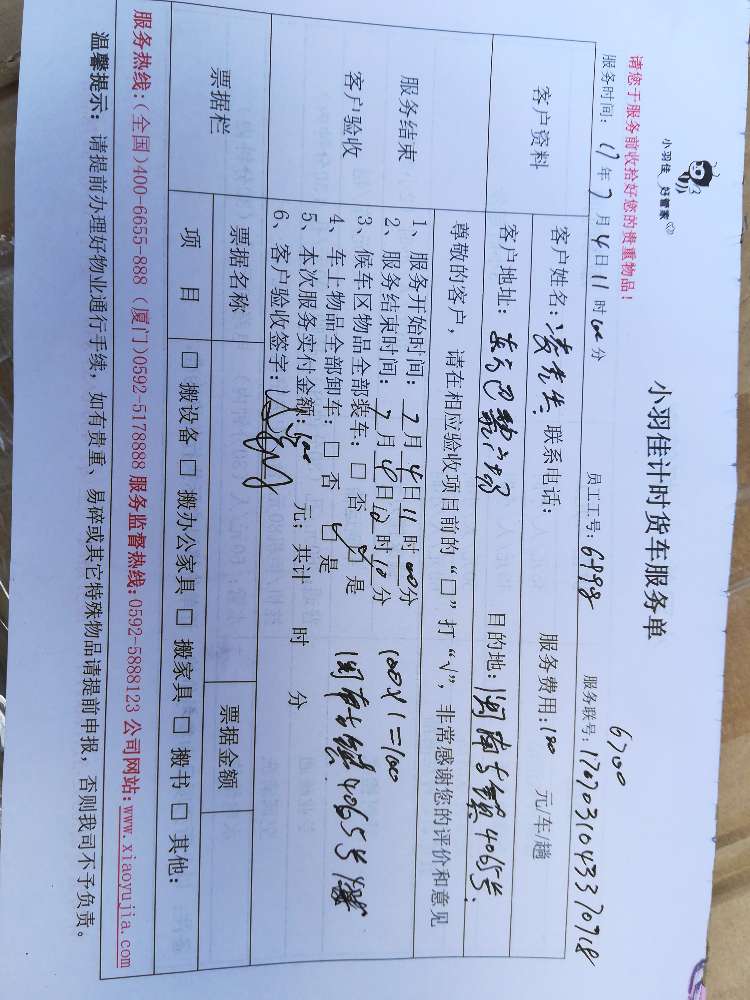 小羽佳 好管家
小羽佳计时货车服务单
请您于服务前收拾好您的贵重物品！
6700
服务时间：17年7月4日11时00分 员工工号：6498 服务联号：1707031043370718
客户资料
客户姓名：凌先生 联系电话： 服务费用：100 元/车/趟
客户地址： 目的地：闽南古镇4065号
尊敬的客户，请在相应验收项目前的“□”打“√”，非常感谢您的评价和意见
服务结束
客户验收
1、服务开始时间：7月4日11时00分
2、服务结束时间：7月4日12时10分 100×1=100
3、候车区物品全部装车：□否 ☑是 闽南古镇4065号
4、车上物品全部卸车：□否 ☑是
5、本次服务实付金额：100元；共计 时 分
6、客户验收签字：
票据栏
票据名称 票据金额
项 目 □ 搬设备 □ 搬办公家具 □ 搬家具 □ 搬书 □ 其他：
服务热线：(全国)400-6655-888 (厦门)0592-5178888 服务监督热线:0592-5888123 公司网站:www.xiaoyujia.com
温馨提示：请提前办理好物业通行手续，如有贵重、易碎或其它特殊物品请提前申报，否则我司不予负责。